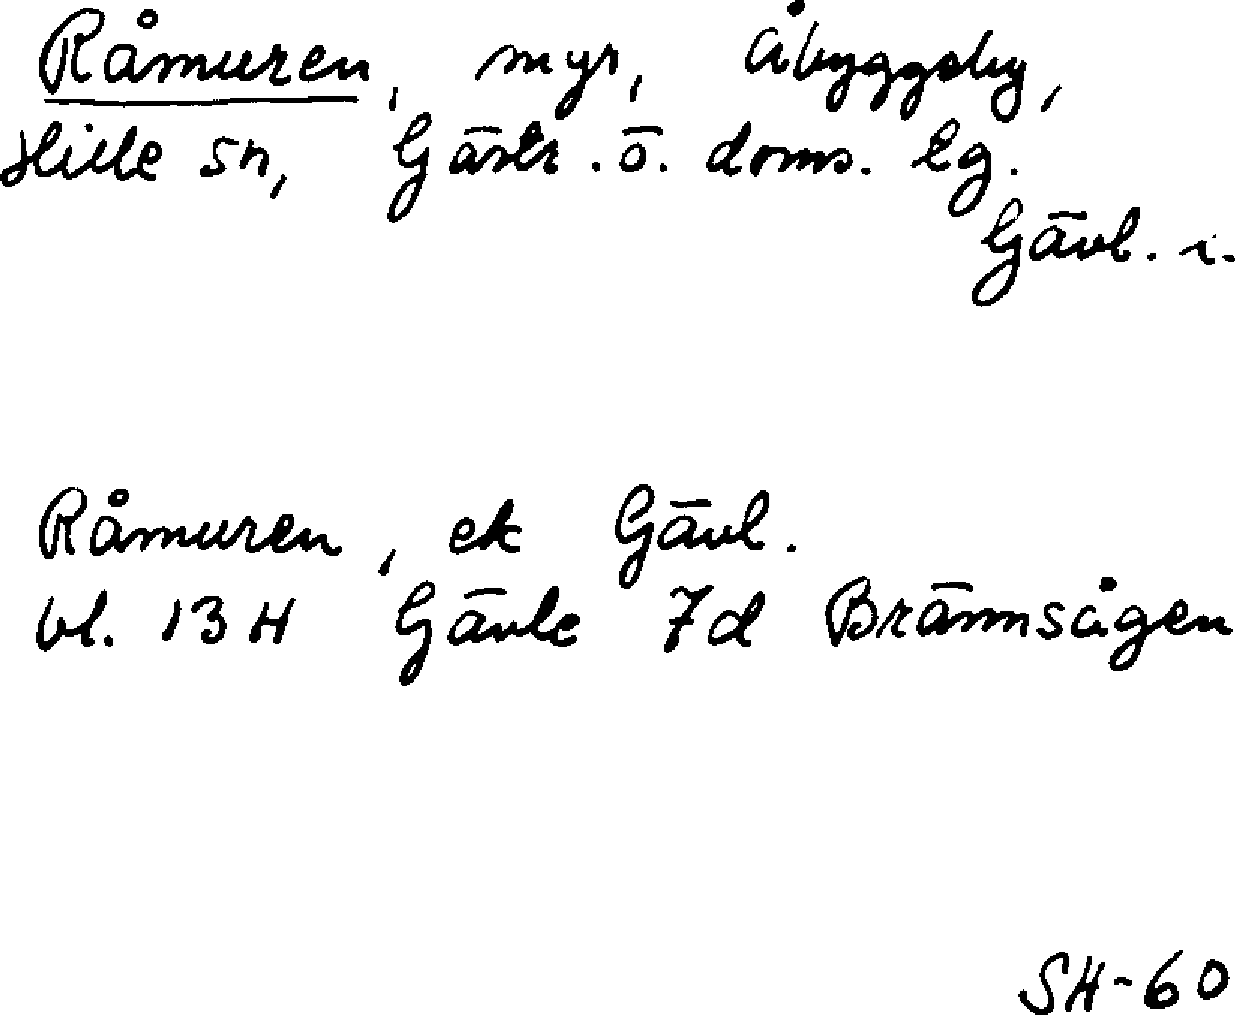 Råmuren, myr, Åbyggeby,
Hille sn, Gästr. ö. doms. lg.
Gävl. l.
Råmuren, ek Gävl.
bl. 13 H Gävle 7d Brännsågen
SH-60